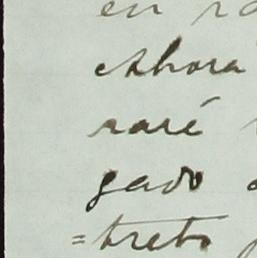 en
Ahora
raré
gado
=treto